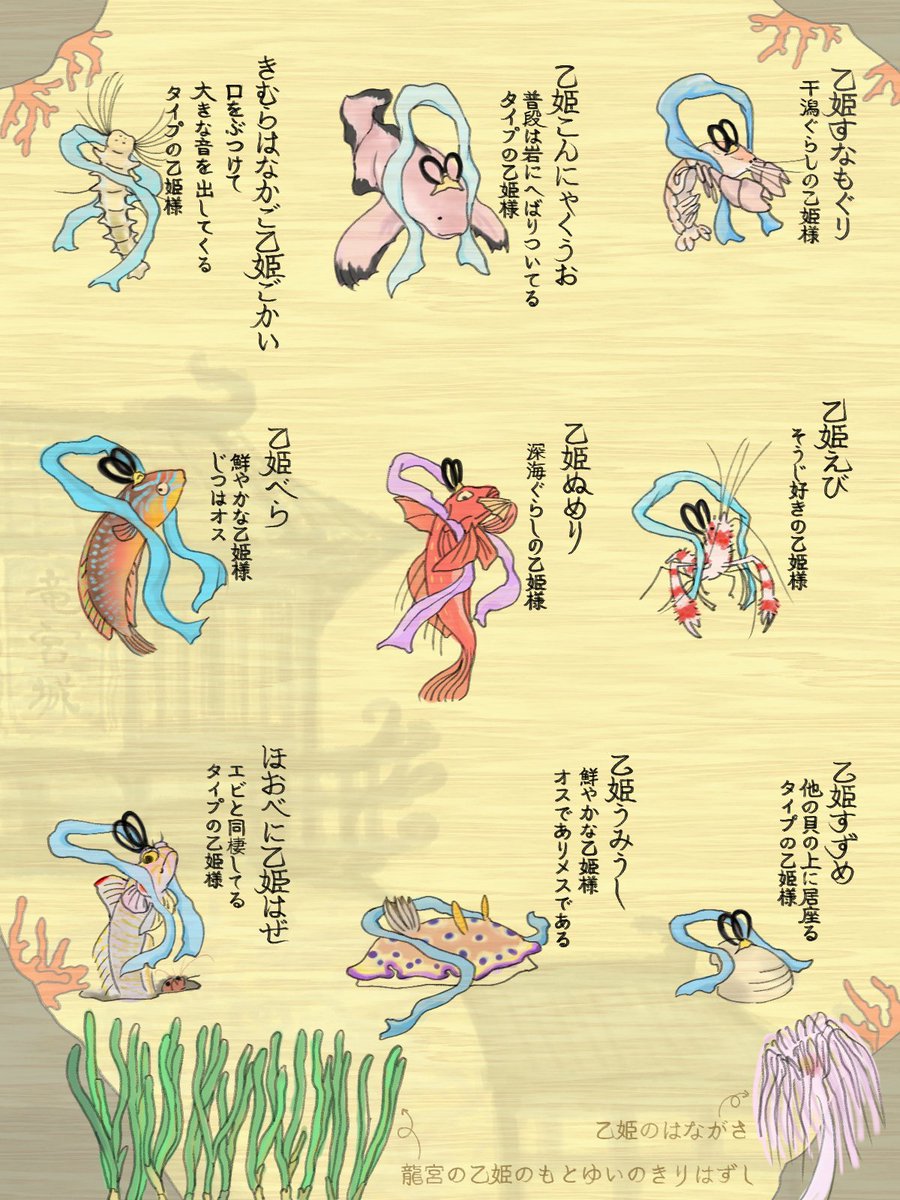 乙姫すなもぐり
干潟ぐらしの乙姫様
乙姫こんにゃくうお
普段は岩にへばりついてる
タイプの乙姫様
きむらはなかご乙姫ごかい
口をぶつけて
大きな音を出してくる
タイプの乙姫様
乙姫えび
そうじ好きの乙姫様
乙姫ぬめり
深海ぐらしの乙姫様
乙姫べら
鮮やかな乙姫様
じつはオス
乙姫すずめ
他の貝の上に居座る
タイプの乙姫様
乙姫うみうし
鮮やかな乙姫様
オスでありメスである
ほおべに乙姫はぜ
エビと同棲してる
タイプの乙姫様
乙姫のはながさ
龍宮の乙姫のもとゆいのきりはずし
竜宮城